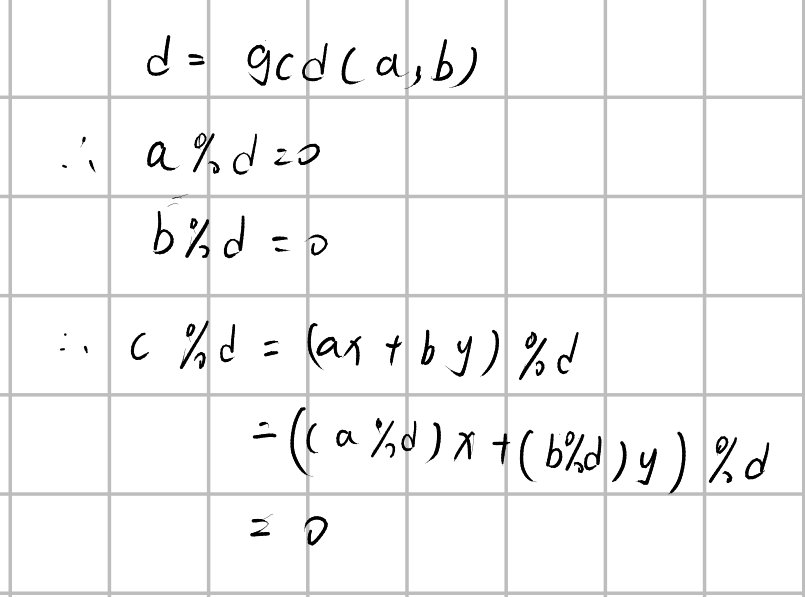 d = gcd(a,b)
∴ a%d=0
b%d=0
∴ c%d = (ax+by)%d
=((a%d)x+(b%d)y)%d
= 0